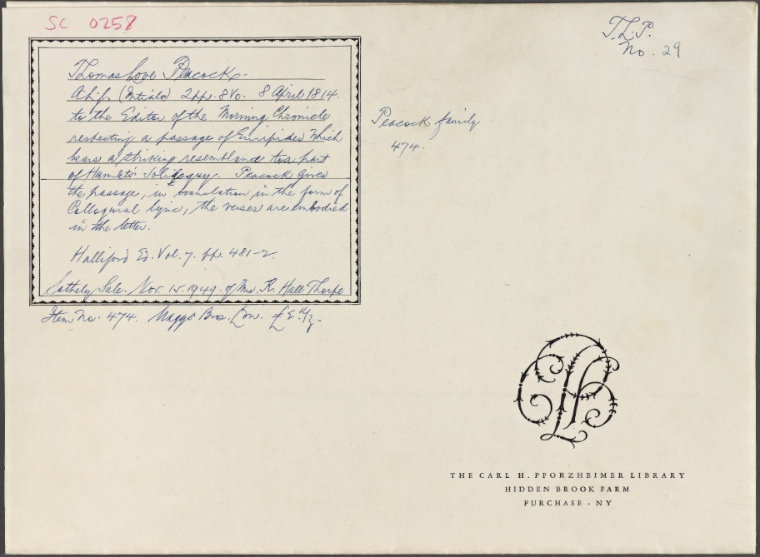 SC 0258
T.L.P.
No. 29
Thomas Love Peacock.
A.L.f. (Initials) 2pp. 8vo. 8 April 1814.
to the Editor of the Morning Chronicle
respecting a passage of Euripides which
bears a striking resemblance to a part
of Hamlet's Soliloquy. Peacock gives
the passage, in translation, in the form of
Colloquial lyric, the verses are embodied
in the letter.
Halliford Ed. Vol. 7. pp. 481-2.
Sotheby Sale. Nov. 15. 1949. of Mrs. R. Hall Thorpe
Item No. 474. Maggs Bros. Lon. £
Peacock family
474.
THE CARL H. PFORZHEIMER LIBRARY
HIDDEN BROOK FARM
PURCHASE · NY